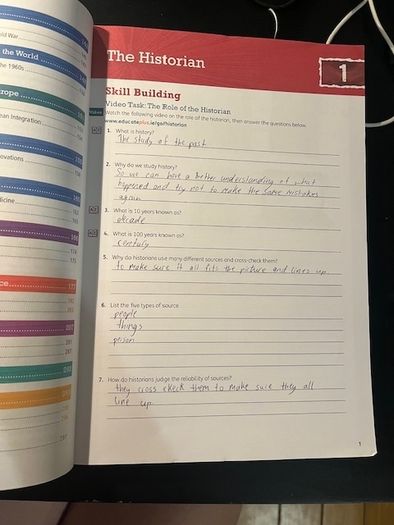 the World
the 1960s
The Historian
1
Skill Building
Video Task: The Role of the Historian
Watch the following video on the role of the historian, then answer the questions below.
www.educateplus.ie/go/historian
1. What is history?
The study of the past
2. Why do we study history?
So we can have a better understanding of what
happened and try not to make the same mistakes
again
3. What is 10 years known as?
decade
4. What is 100 years known as?
century
5. Why do historians use many different sources and cross-check them?
to make sure it all fits the picture and lines up
6. List the five types of source
people
things
person
7. How do historians judge the reliability of sources?
they cross ckeck them to make sure they all
line up
1